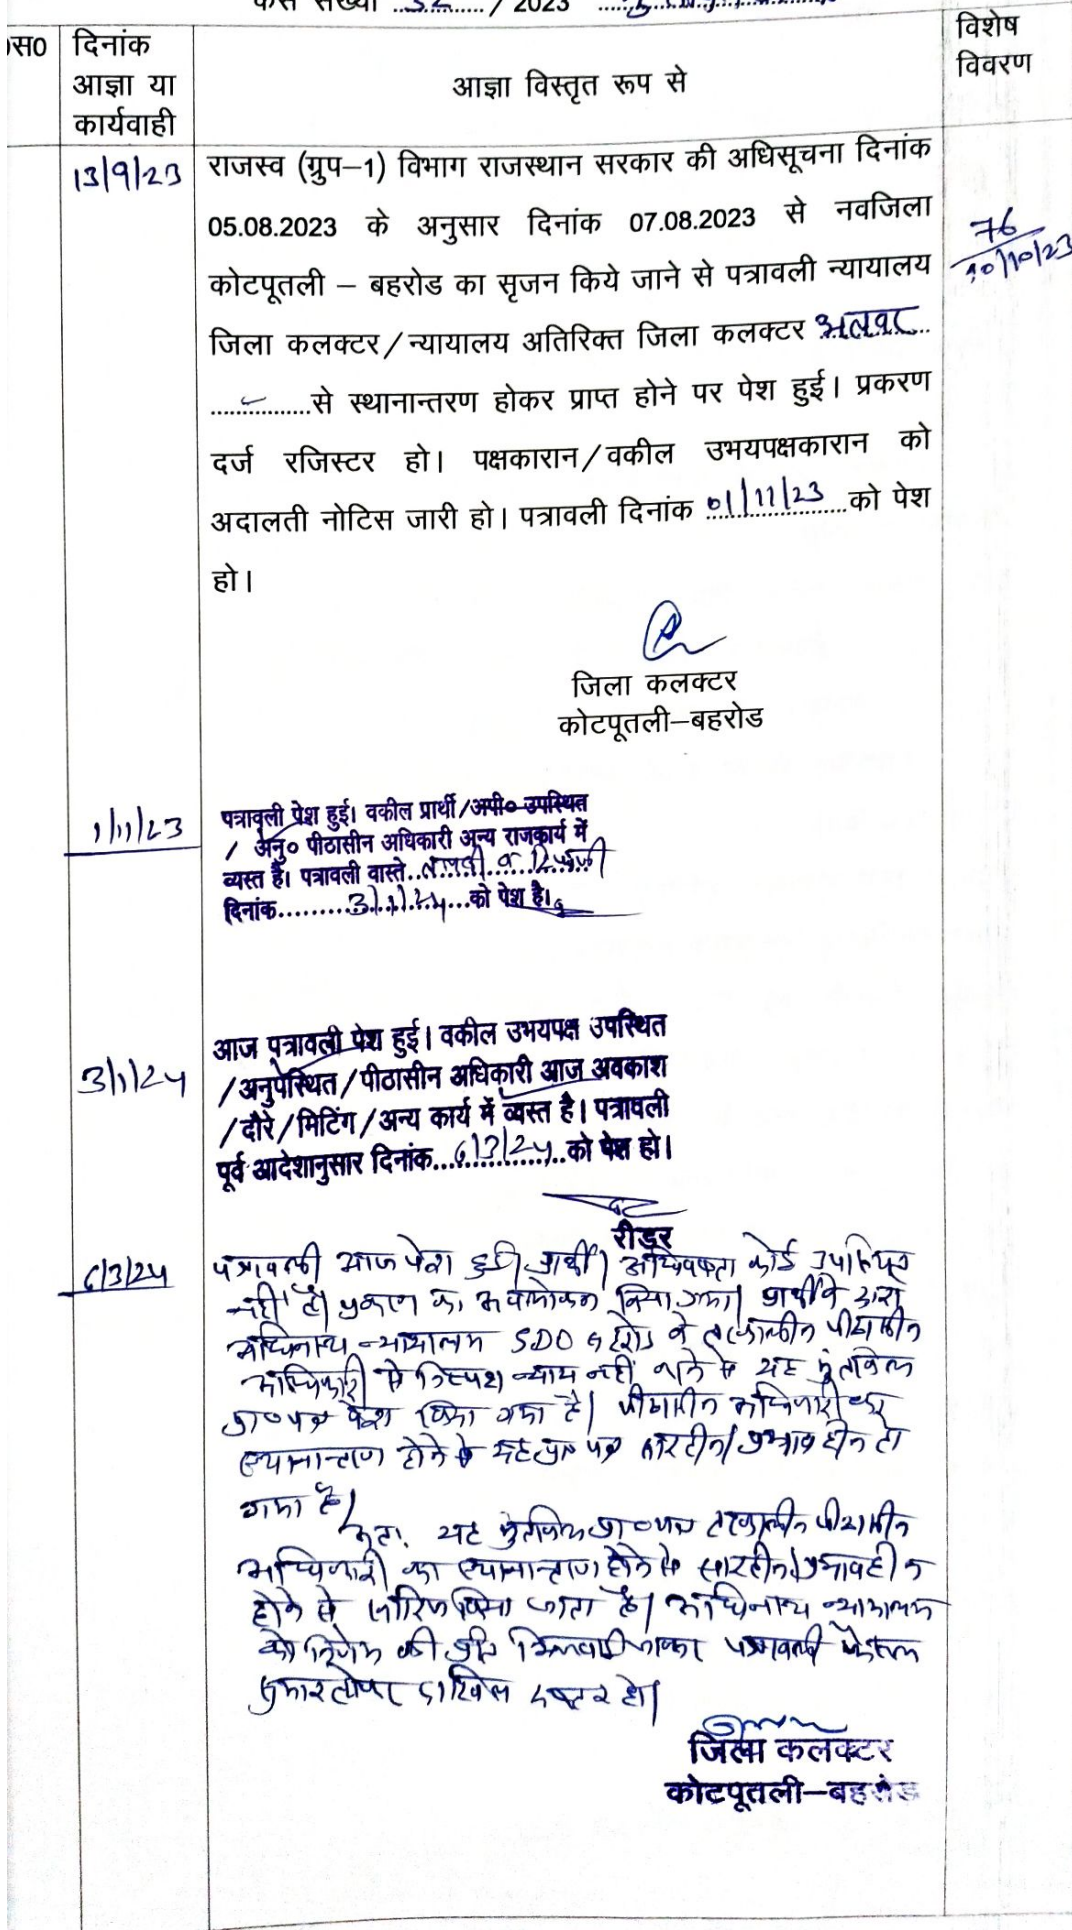 केस संख्या ...32....../ 2023
०स0
दिनांक
आज्ञा या
कार्यवाही
आज्ञा विस्तृत रूप से
विशेष
विवरण
13/9/23
राजस्व (ग्रुप–1) विभाग राजस्थान सरकार की अधिसूचना दिनांक
05.08.2023 के अनुसार दिनांक 07.08.2023 से नवजिला
कोटपूतली – बहरोड का सृजन किये जाने से पत्रावली न्यायालय
जिला कलक्टर/न्यायालय अतिरिक्त जिला कलक्टर अलवर..
................से स्थानान्तरण होकर प्राप्त होने पर पेश हुई। प्रकरण
दर्ज रजिस्टर हो। पक्षकारान/वकील उभयपक्षकारान को
अदालती नोटिस जारी हो। पत्रावली दिनांक 01/11/23 को पेश
हो।
76
10/10/23
जिला कलक्टर
कोटपूतली–बहरोड
1/11/23
पत्रावली पेश हुई। वकील प्रार्थी/अपी० उपस्थित
/ अनु० पीठासीन अधिकारी अन्य राजकार्य में
व्यस्त है। पत्रावली वास्ते..तलबी व
दिनांक.........3/1/24...को पेश है।
3/1/24
आज पत्रावली पेश हुई। वकील उभयपक्ष उपस्थित
/अनुपस्थित/पीठासीन अधिकारी आज अवकाश
/दौरे/मिटिंग/अन्य कार्य में व्यस्त है। पत्रावली
पूर्व आदेशानुसार दिनांक...6/3/24..को पेश हो।
रीडर
6/3/24
पत्रावली आज पेश हुई। प्रार्थी/ अधिवक्ता कोई उपस्थित
नहीं है। प्रकरण का अवलोकन किया गया। प्रार्थी के द्वारा
अधिनस्थ न्यायालय SDO बहरोड के तत्कालीन पीठासीन
अधिकारी से निष्पक्ष न्याय नहीं मिलने से यह मुंतकिल
प्रा०पत्र पेश किया गया है। पीठासीन अधिकारी का
स्थानान्तरण होने से यह प्रा० पत्र सारहीन/प्रभावहीन हो
गया है।
अतः यह मुंतकिल प्रा०पत्र तत्कालीन पीठासीन
अधिकारी का स्थानान्तरण होने से सारहीन/प्रभावहीन
होने से खारिज किया जाता है। अधिनस्थ न्यायालय
को निर्णय की प्रति भिजवाई जाकर पत्रावली फैसल
शुमार होकर दाखिल दफ्तर हो।
जिला कलक्टर
कोटपूतली–बहरोड